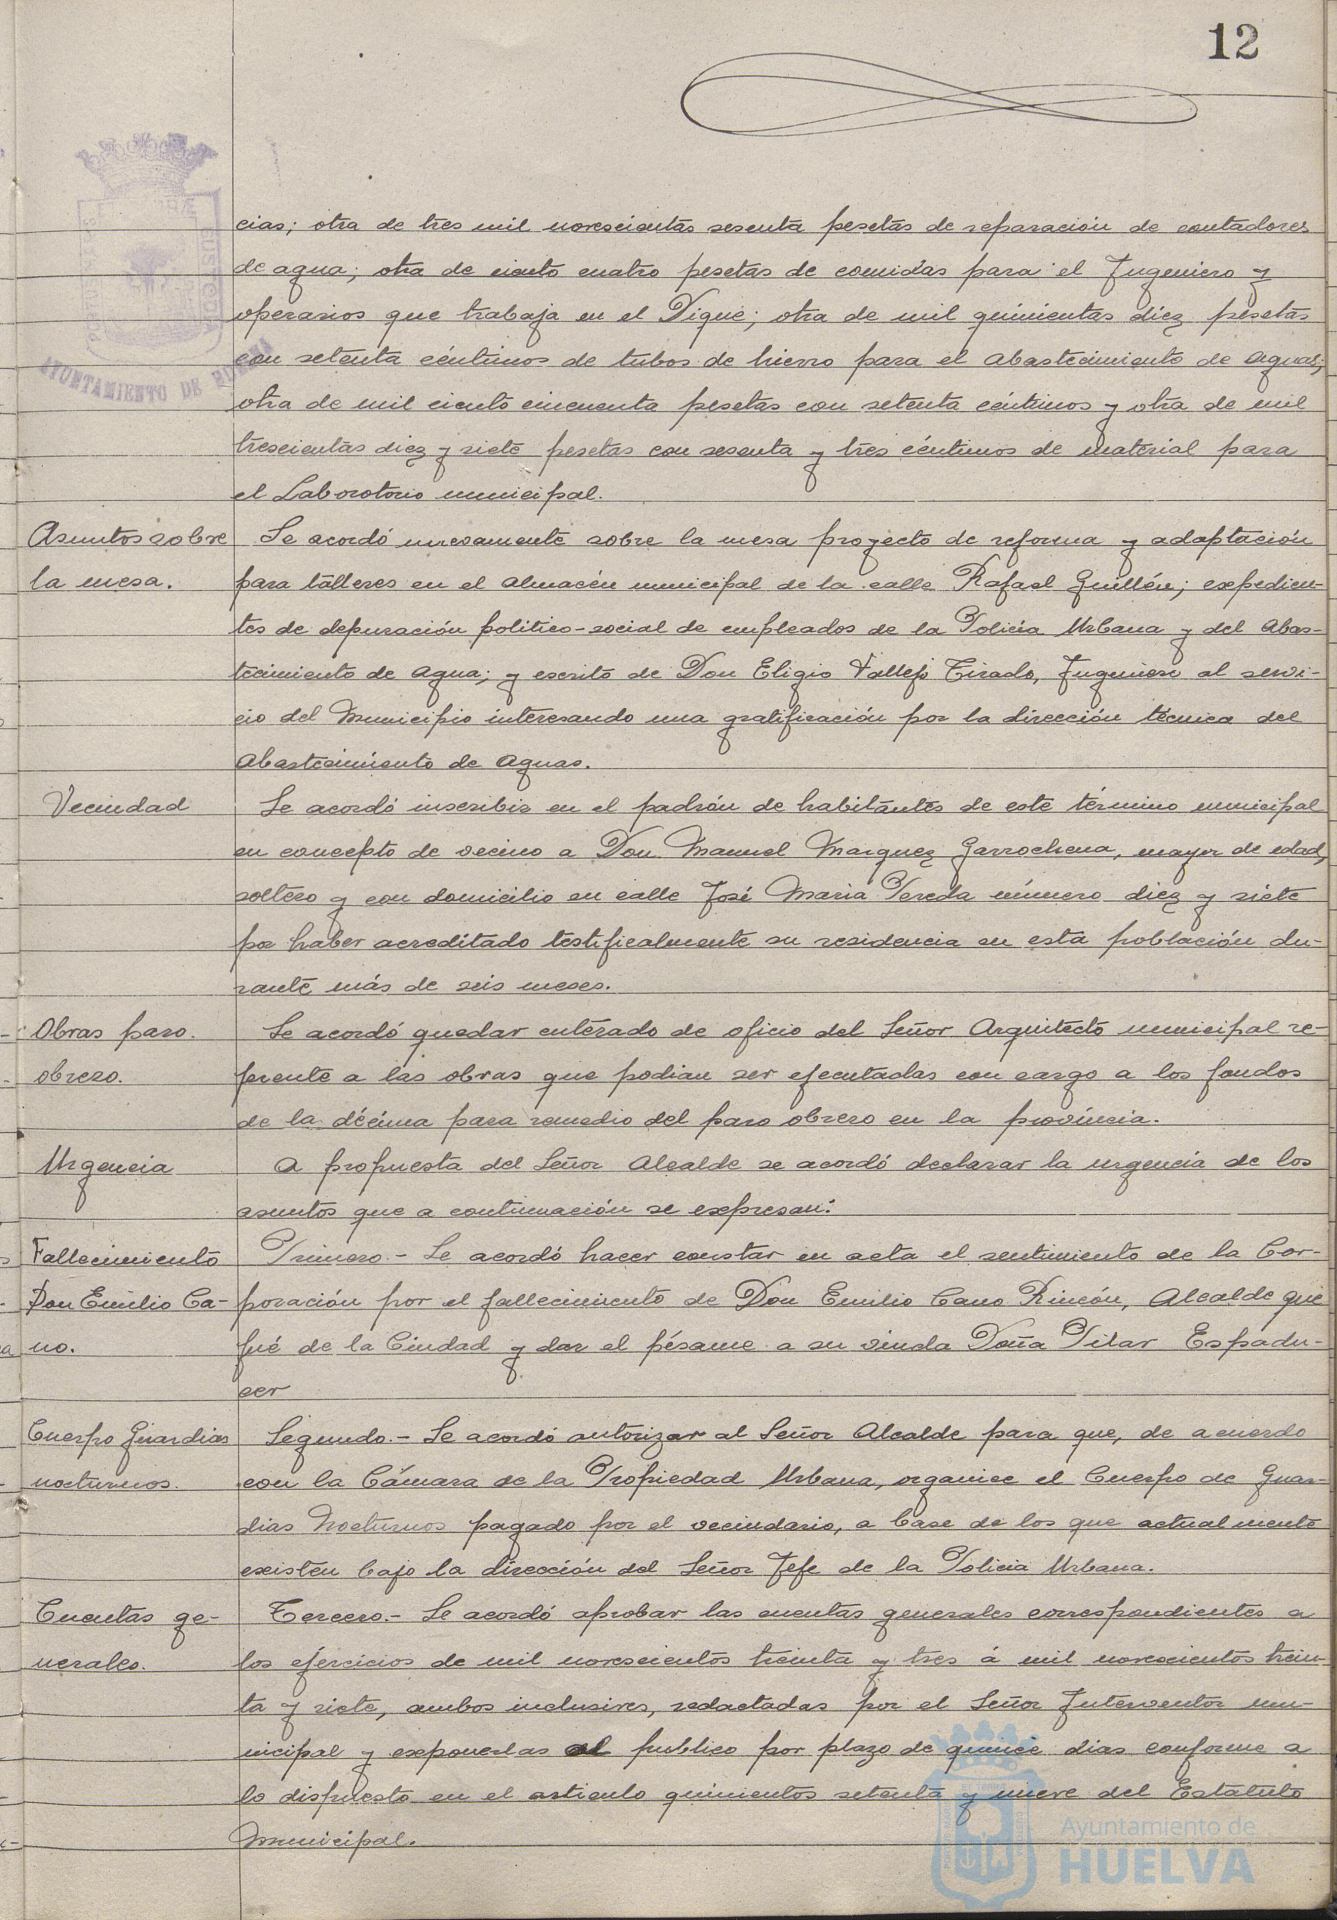 12
cias; otra de tres mil novescientas sesenta pesetas de reparación de contadores
de agua; otra de ciento cuatro pesetas de comidas para el Ingeniero y
operarios que trabaja en el Dique; otra de mil quinientas diez pesetas
con setenta céntimos de tubos de hierro para el abastecimiento de aguas;
otra de mil ciento cincuenta pesetas con setenta céntimos y otra de mil
trescientas diez y siete pesetas con sesenta y tres céntimos de material para
el Laboratorio municipal.
Asuntos sobre la mesa.
Se acordó nuevamente sobre la mesa proyecto de reforma y adaptación
para talleres en el almacén municipal de la calle Rafael Guillén; expedien-
tes de depuración politico-social de empleados de la Policia Urbana y del Abas-
tecimiento de agua; y escrito de Don Eligio Vallejo Tirado, Ingeniero al servi-
cio del Municipio interesando una gratificación por la dirección técnica del
abastecimiento de aguas.
Vecindad
Se acordó inscribir en el padrón de habitantes de este término municipal
en concepto de vecino a Don Manuel Marquez Garrochena, mayor de edad,
soltero y con domicilio en calle José Maria Pereda número diez y siete
por haber acreditado testificalmente su residencia en esta población du-
rante más de seis meses.
Obras paro.
obrero.
Se acordó quedar enterado de oficio del Señor Arquitecto municipal re-
ferente a las obras que podian ser ejecutadas con cargo a los fondos
de la décima para remedio del paro obrero en la provincia.
Urgencia
A propuesta del Señor Alcalde se acordó declarar la urgencia de los
asuntos que a continuación se expresan:
Fallecimiento
Don Emilio Ca-
no.
Primero.- Se acordó hacer constar en acta el sentimiento de la Cor-
poración por el fallecimiento de Don Emilio Cano Rincón, Alcalde que
fué de la Ciudad y dar el pésame a su viuda Doña Pilar Espadu-
cer
Cuerpo Guardias
nocturnos.
Segundo.- Se acordó autorizar al Señor Alcalde para que, de acuerdo
con la Cámara de la Propiedad Urbana, organice el Cuerpo de Guar-
dias Nocturnos pagado por el vecindario, a base de los que actualmente
existen bajo la dirección del Señor Jefe de la Policia Urbana.
Cuentas ge-
nerales.
Tercero.- Se acordó aprobar las cuentas generales correspondientes a
los ejercicios de mil novescientos treinta y tres á mil novescientos trein-
ta y siete, ambos inclusives, redactadas por el Señor Interventor mu-
nicipal y exponerlas al publico por plazo de quince dias conforme a
lo dispuesto en el articulo quinientos setenta y nueve del Estatuto
Municipal.
AYUNTAMIENTO DE HUELVA
Ayuntamiento de
HUELVA